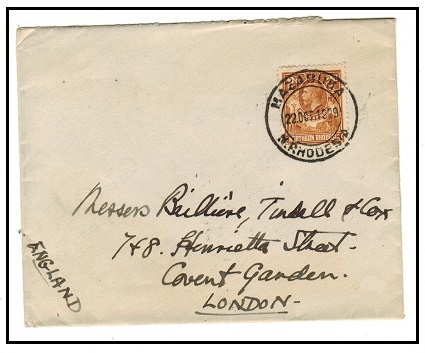 MAZABUKA
22 OCT 1929
N. RHODESIA
NORTHERN RHODESIA
Messers Baillière, Tindall & Cox
7 & 8. Henrietta Street.
Covent Garden.
LONDON-
ENGLAND